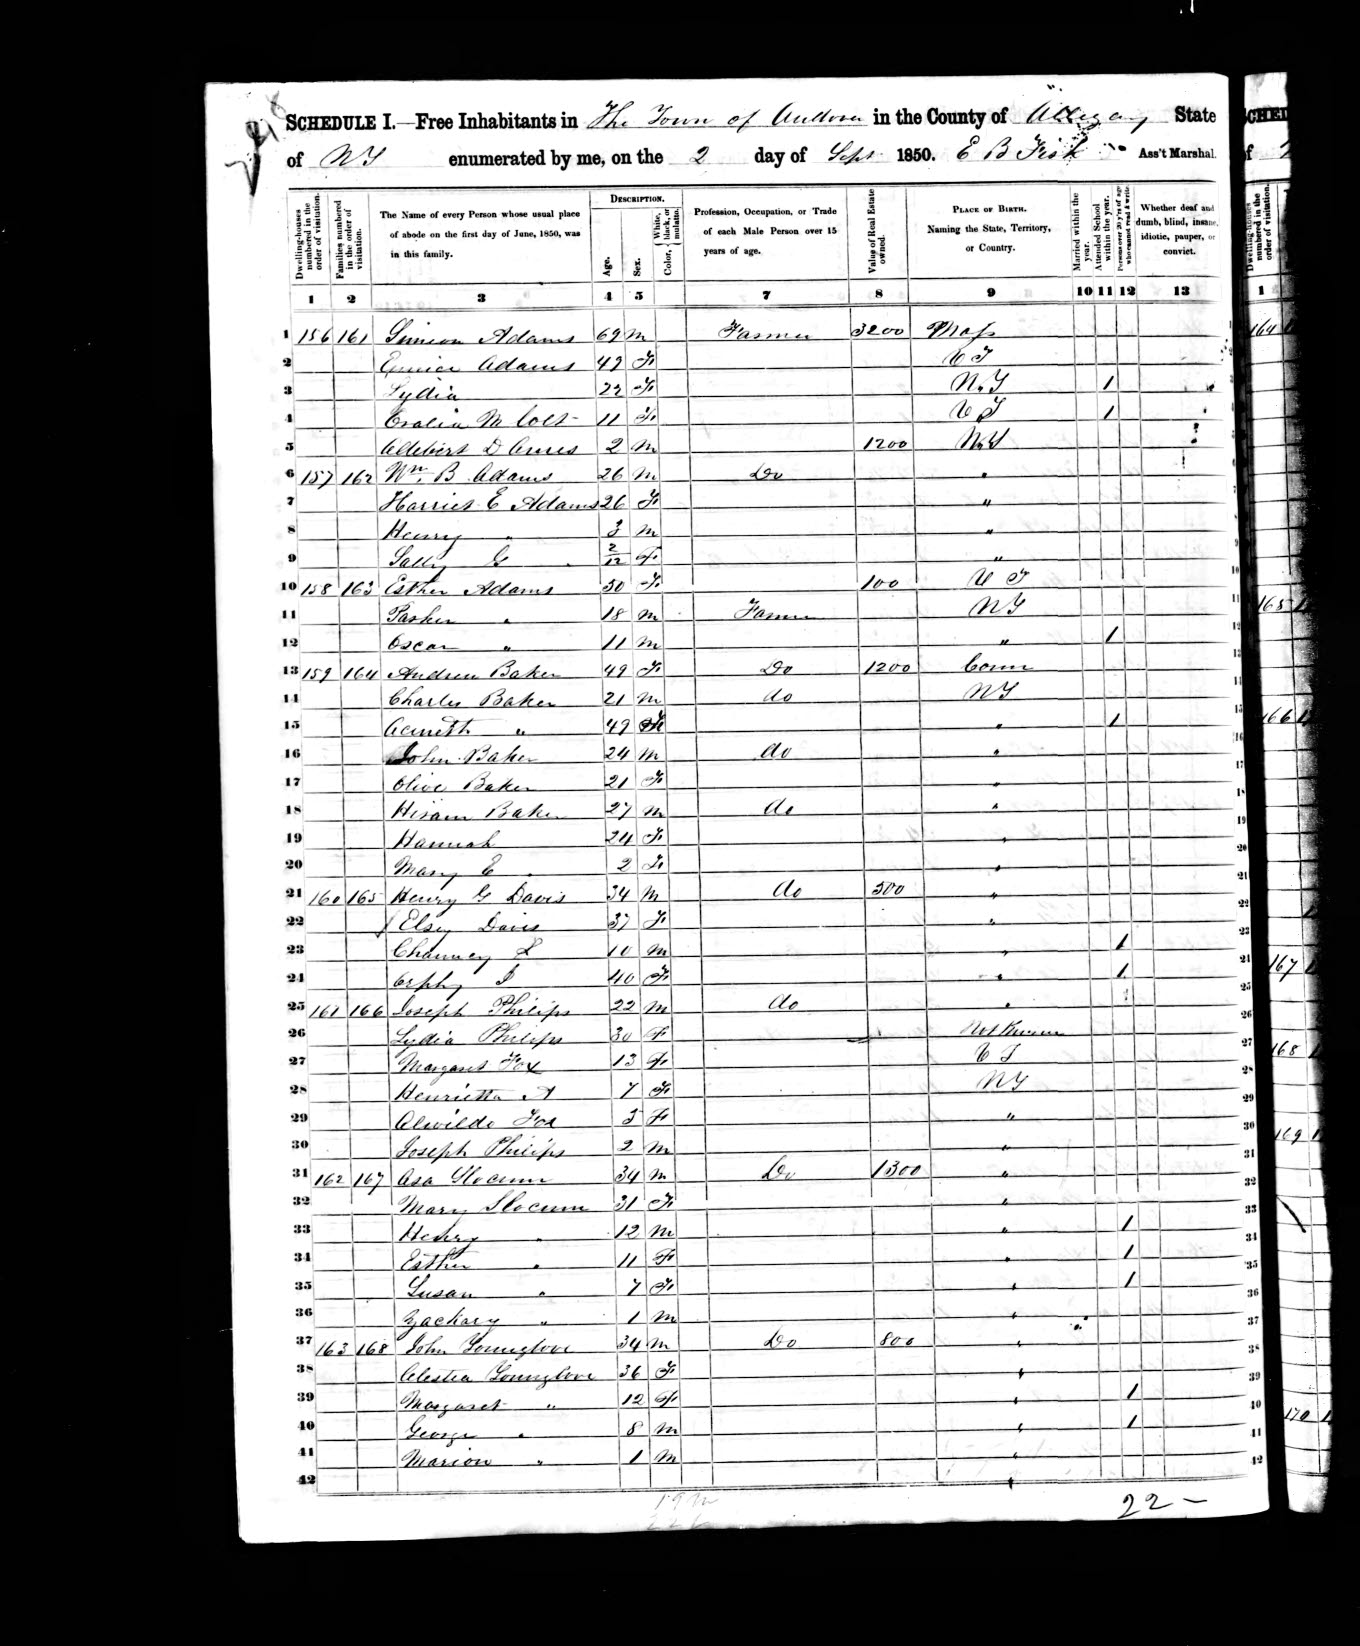 SCHEDULE I.—Free Inhabitants in The Town of Andover in the County of Allegany State
of NY enumerated by me, on the 2 day of Sept 1850. E B Fisk Ass't Marshal.
Dwelling-houses numbered in the order of visitation.
Families numbered in the order of visitation.
The Name of every Person whose usual place of abode on the first day of June, 1850, was in this family.
DESCRIPTION.
Age.
Sex.
Color, White, black, or mulatto.
Profession, Occupation, or Trade of each Male Person over 15 years of age.
Value of Real Estate owned.
PLACE OF BIRTH. Naming the State, Territory, or Country.
Married within the year.
Attended School within the year.
Persons over 20 y'rs of age who cannot read & write.
Whether deaf and dumb, blind, insane, idiotic, pauper, or convict.
1 2 3 4 5 7 8 9 10 11 12 13
1 156 161 Simeon Adams 69 M Farmer 3200 Mass
2 Eunice Adams 49 F
3 Lydia 22 F N.Y 1
4 M Colt 11 F 1
5 D 2 M 1200 N.Y
6 157 162 Wm. B Adams 26 M Do "
7 Harriet E Adams 26 F "
8 Henry " 3 M "
9 Sally G 2/12 F "
10 158 163 Esther Adams 50 F 100
11 Parker " 18 M Farmer NY
12 Oscar " 11 M " 1
13 159 164 Andrew Baker 49 F Do 1200 Conn
14 Charles Baker 21 M do NY
15 " 49 F " 1
16 John Baker 24 M do "
17 Olive Baker 21 F "
18 Hiram Baker 27 M do "
19 Hannah 24 F "
20 Mary E 2 F "
21 160 165 Henry G Davis 34 M do 500 "
22 Elsey Davis 37 F "
23 Chauncy L 10 M " 1
24 40 F " 1
25 161 166 Joseph Philips 22 M do "
26 Lydia Philips 30 F Not Known
27 Margaret Fox 13 F
28 Henrietta A 7 F NY
29 Fox 3 F "
30 Joseph Philips 2 M "
31 162 167 Asa Slocum 34 M Do 1300 "
32 Mary Slocum 31 F "
33 Henry " 12 M " 1
34 Esther " 11 F " 1
35 Susan " 7 F " 1
36 Zackary " 1 M "
37 163 168 John Younglove 34 M Do 800 "
38 Celestia Younglove 36 F "
39 Margaret " 12 F " 1
40 George " 8 M " 1
41 Marion " 1 M "
42
22 —
164
165
166
167
168
169
170